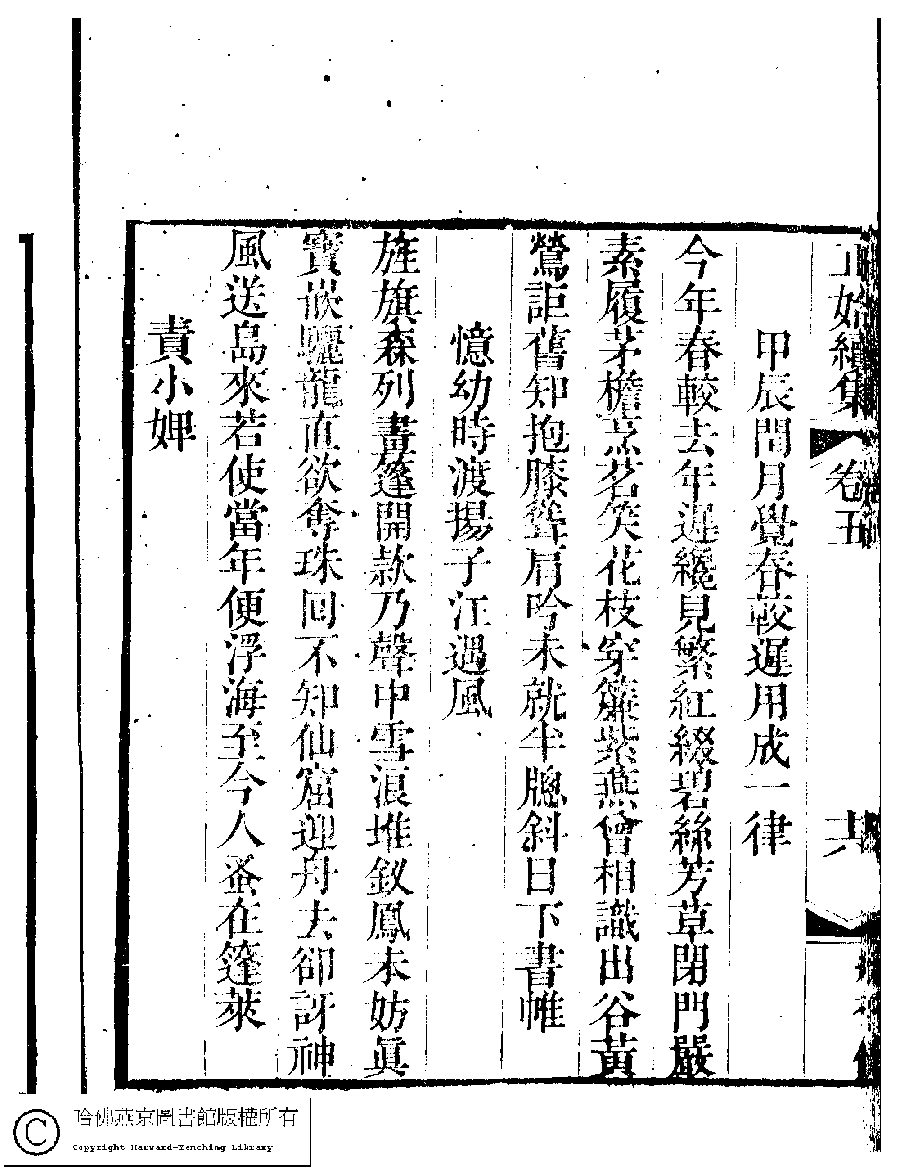 正始續集 卷五
甲辰閏月覺春較遲用成一律
今年春較去年遲纔見繁紅綴碧絲芳草閉門嚴
素履茅檐烹茗笑花枝穿簾紫燕曾相識出谷黃
鶯詎舊知抱膝聳肩吟未就半牕斜日下書帷
憶幼時渡揚子江遇風
旌旗森列畫篷開款乃聲中雪浪堆釵鳳未妨眞
寶嵌驪龍直欲奪珠回不知仙窟迎舟去卻訝神
風送島來若使當年便浮海至今人蚤在篷萊
責小婢
哈佛燕京圖書館版權所有
Copyright Harvard-Yenching Library